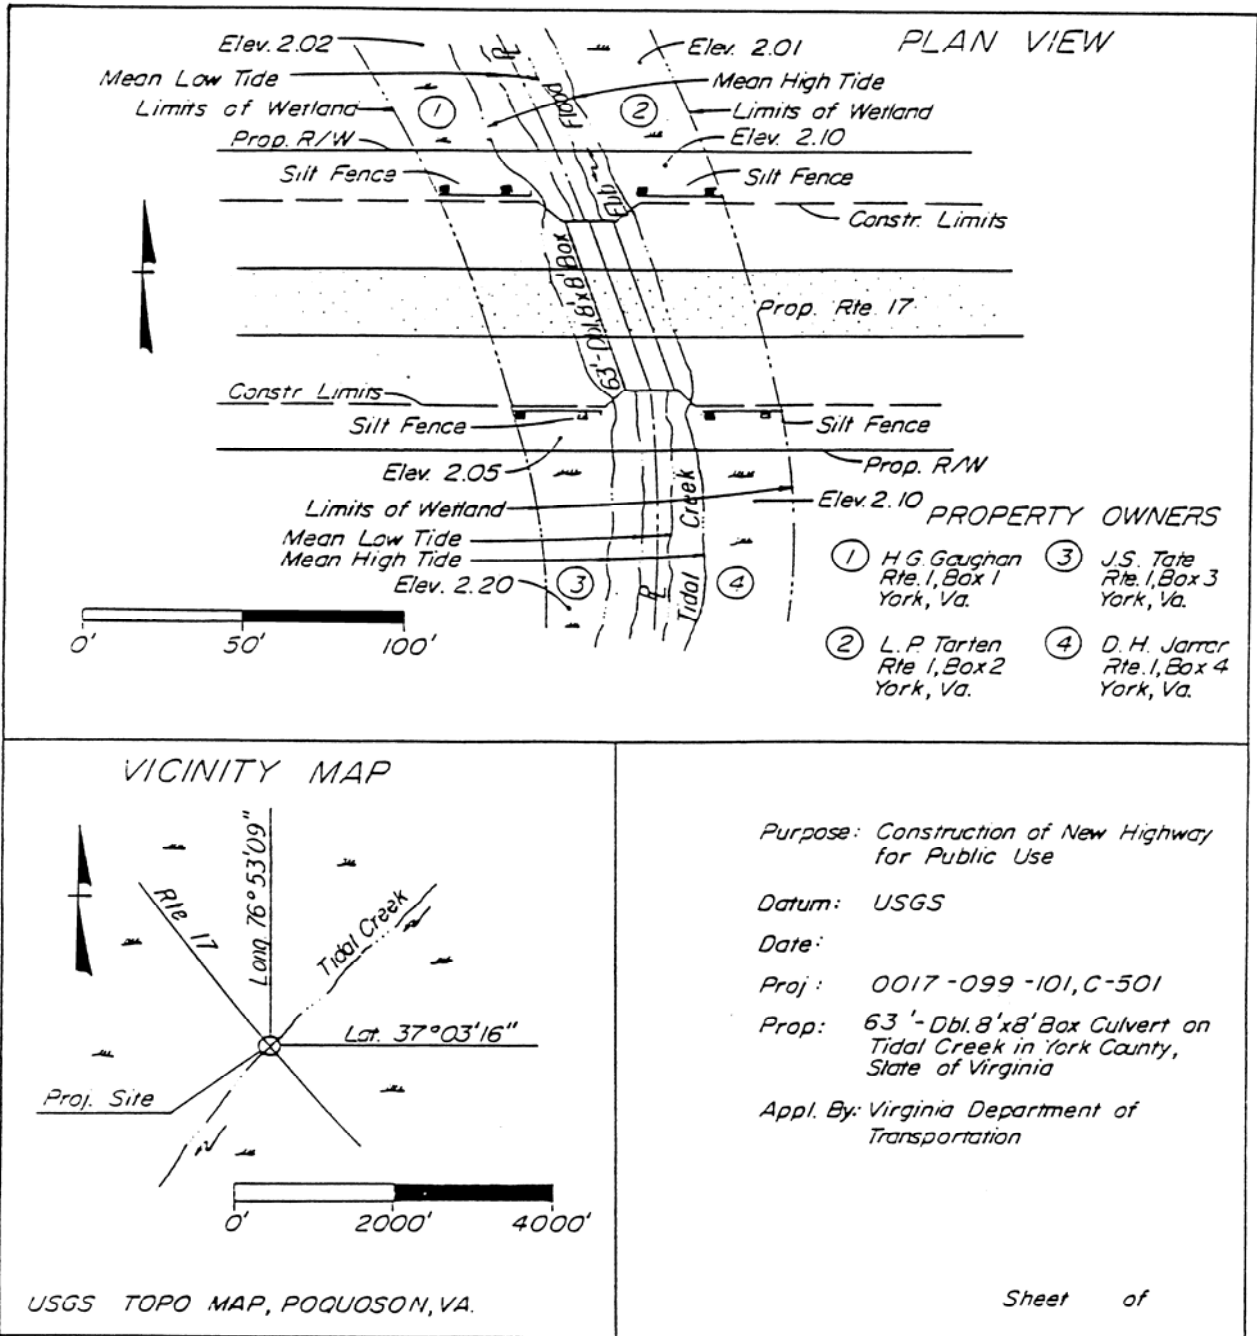 PLAN VIEW
Elev. 2.02
Elev. 2.01
Mean Low Tide
Mean High Tide
Limits of Wetland
Limits of Wetland
Prop. R/W
Elev. 2.10
Silt Fence
Silt Fence
Constr. Limits
PL
Flood
Ebb
1
2
63'-Dbl. 8'x8' Box
Prop. Rte. 17
Constr Limits
Silt Fence
Silt Fence
Elev. 2.05
Prop. R/W
Limits of Wetland
Elev. 2.10
Mean Low Tide
Mean High Tide
Elev. 2.20
3
4
PL
Tidal Creek
0' 50' 100'
PROPERTY OWNERS
1 H G. Gaughan
Rte. 1, Box 1
York, Va.
3 J.S. Tate
Rte. 1, Box 3
York, Va.
2 L. P. Tarten
Rte 1, Box 2
York, Va.
4 D. H. Jarrar
Rte. 1, Box 4
York, Va.
VICINITY MAP
Rte 17
Long. 76° 53'09"
Tidal Creek
Lat. 37°03'16"
Proj. Site
N
N
0' 2000' 4000'
USGS TOPO MAP, POQUOSON, VA.
Purpose: Construction of New Highway
for Public Use
Datum: USGS
Date:
Proj: 0017-099-101, C-501
Prop: 63'-Dbl. 8'x8' Box Culvert on
Tidal Creek in York County,
State of Virginia
Appl. By: Virginia Department of
Transportation
Sheet of